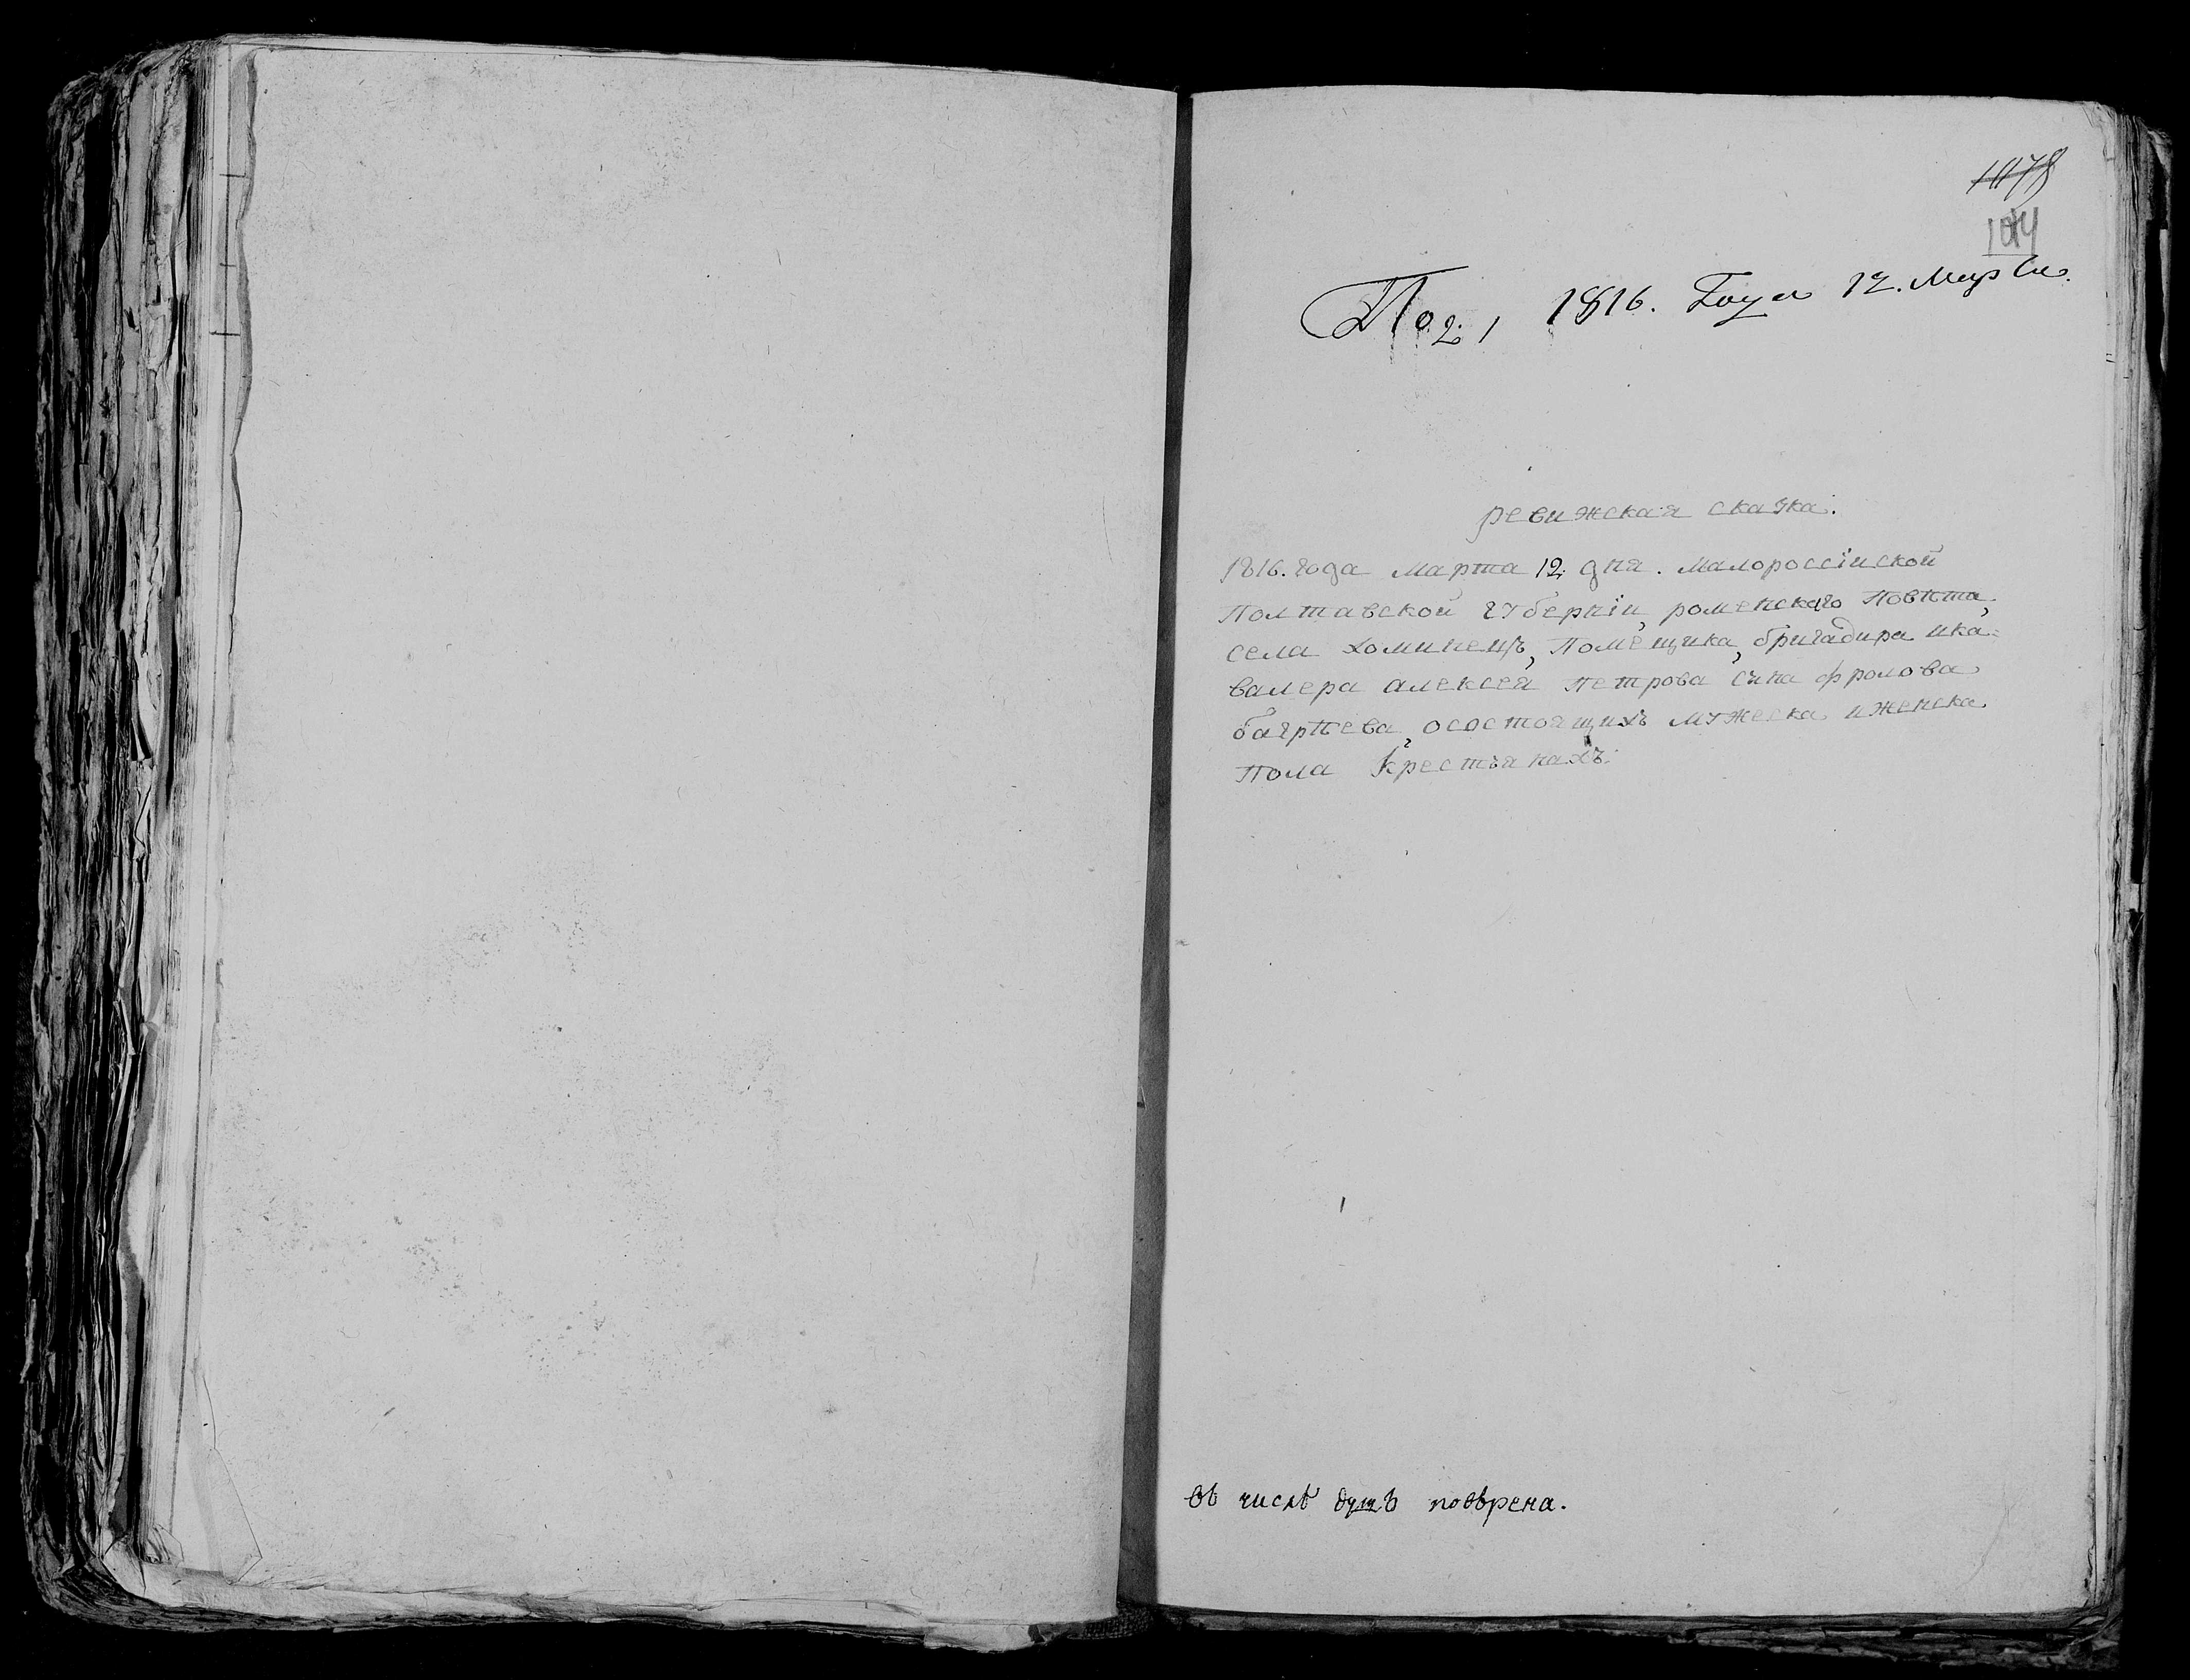 1078
1014
Под. 1816. Года 12. Марта.
ревижская сказка.
1816. года марта 12. дня. малороссїиской
Полтавской губернїи, роменского Повѣта,
села хоминецъ, Помещика, бригадира ика=
валера алексея Петрова сына фролова
багрѣева, осостоящихъ мужеска иженска
Пола Крестьянахъ.
въ числѣ душъ повѣрена.